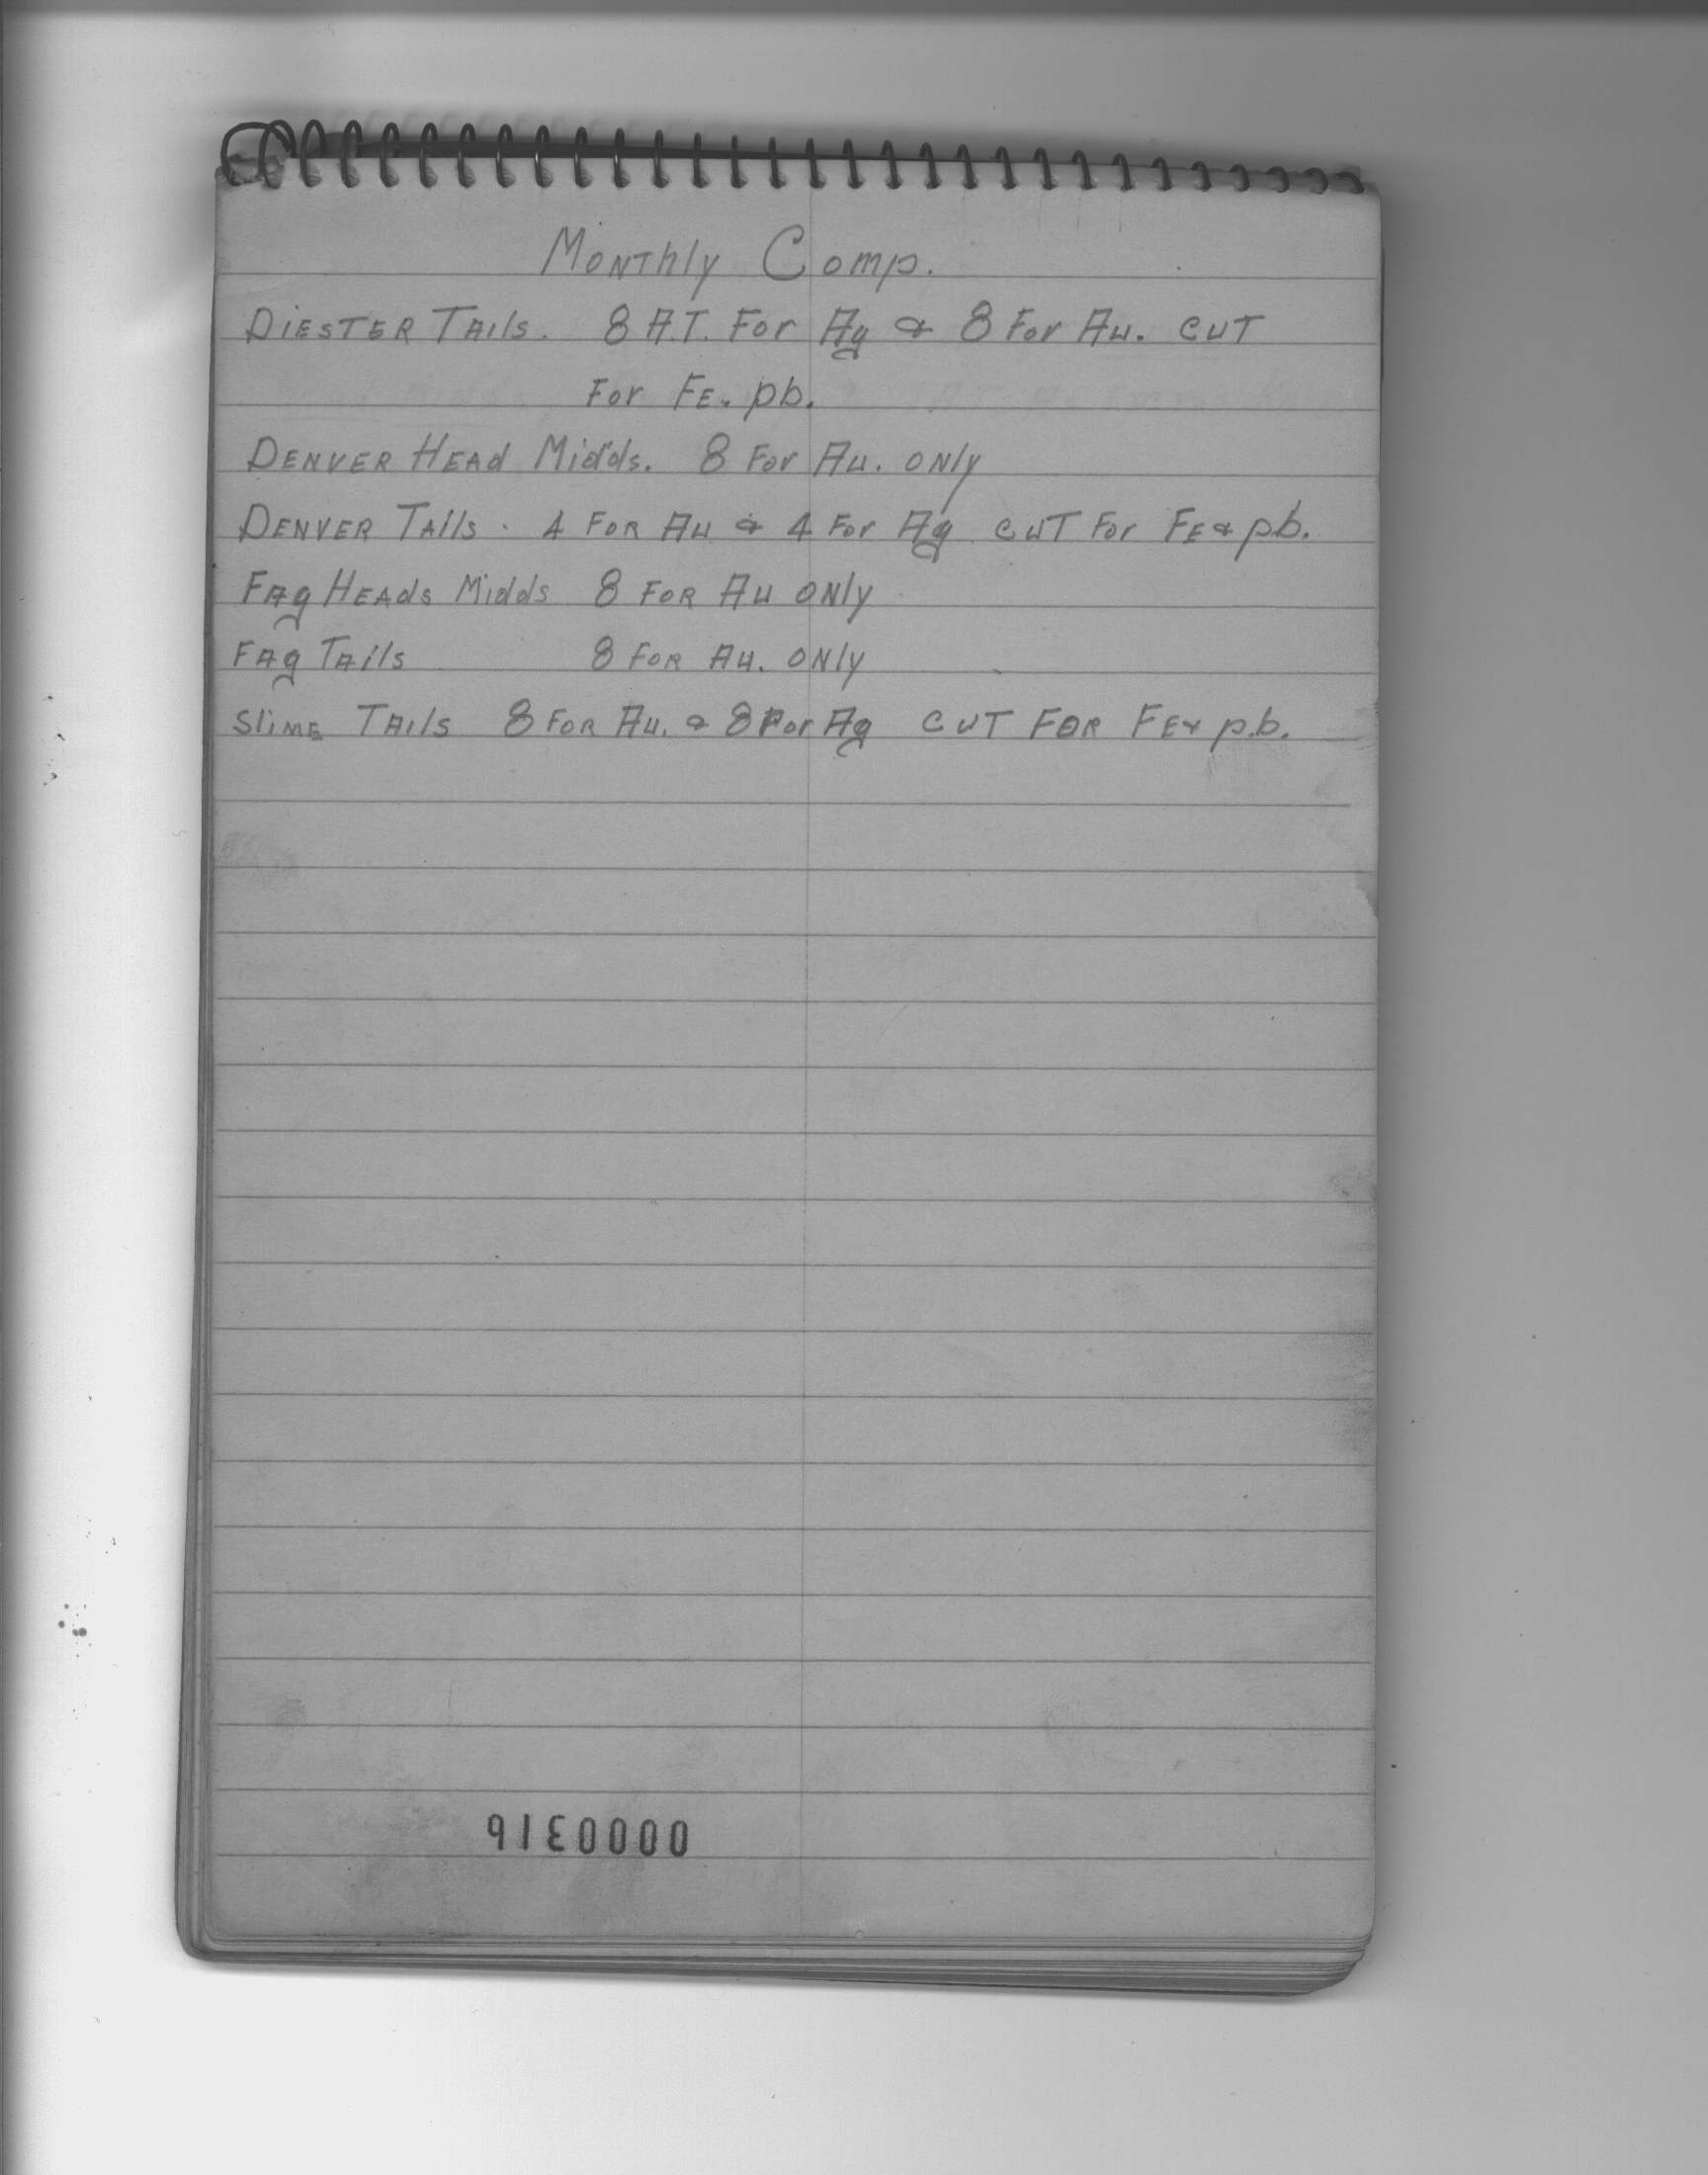 Monthly Comp.
Diester Tails. 8 A.T. For Ag & 8 For Au. cut
For Fe. pb.
Denver Head Midds. 8 For Au. only
Denver Tails. 4 For Au & 4 For Ag cut For Fe & pb.
Fag Heads Midds 8 For Au only
Fag Tails 8 For Au. only
Slime Tails 8 For Au. & 8 For Ag cut For Fe & p.b.
0000316